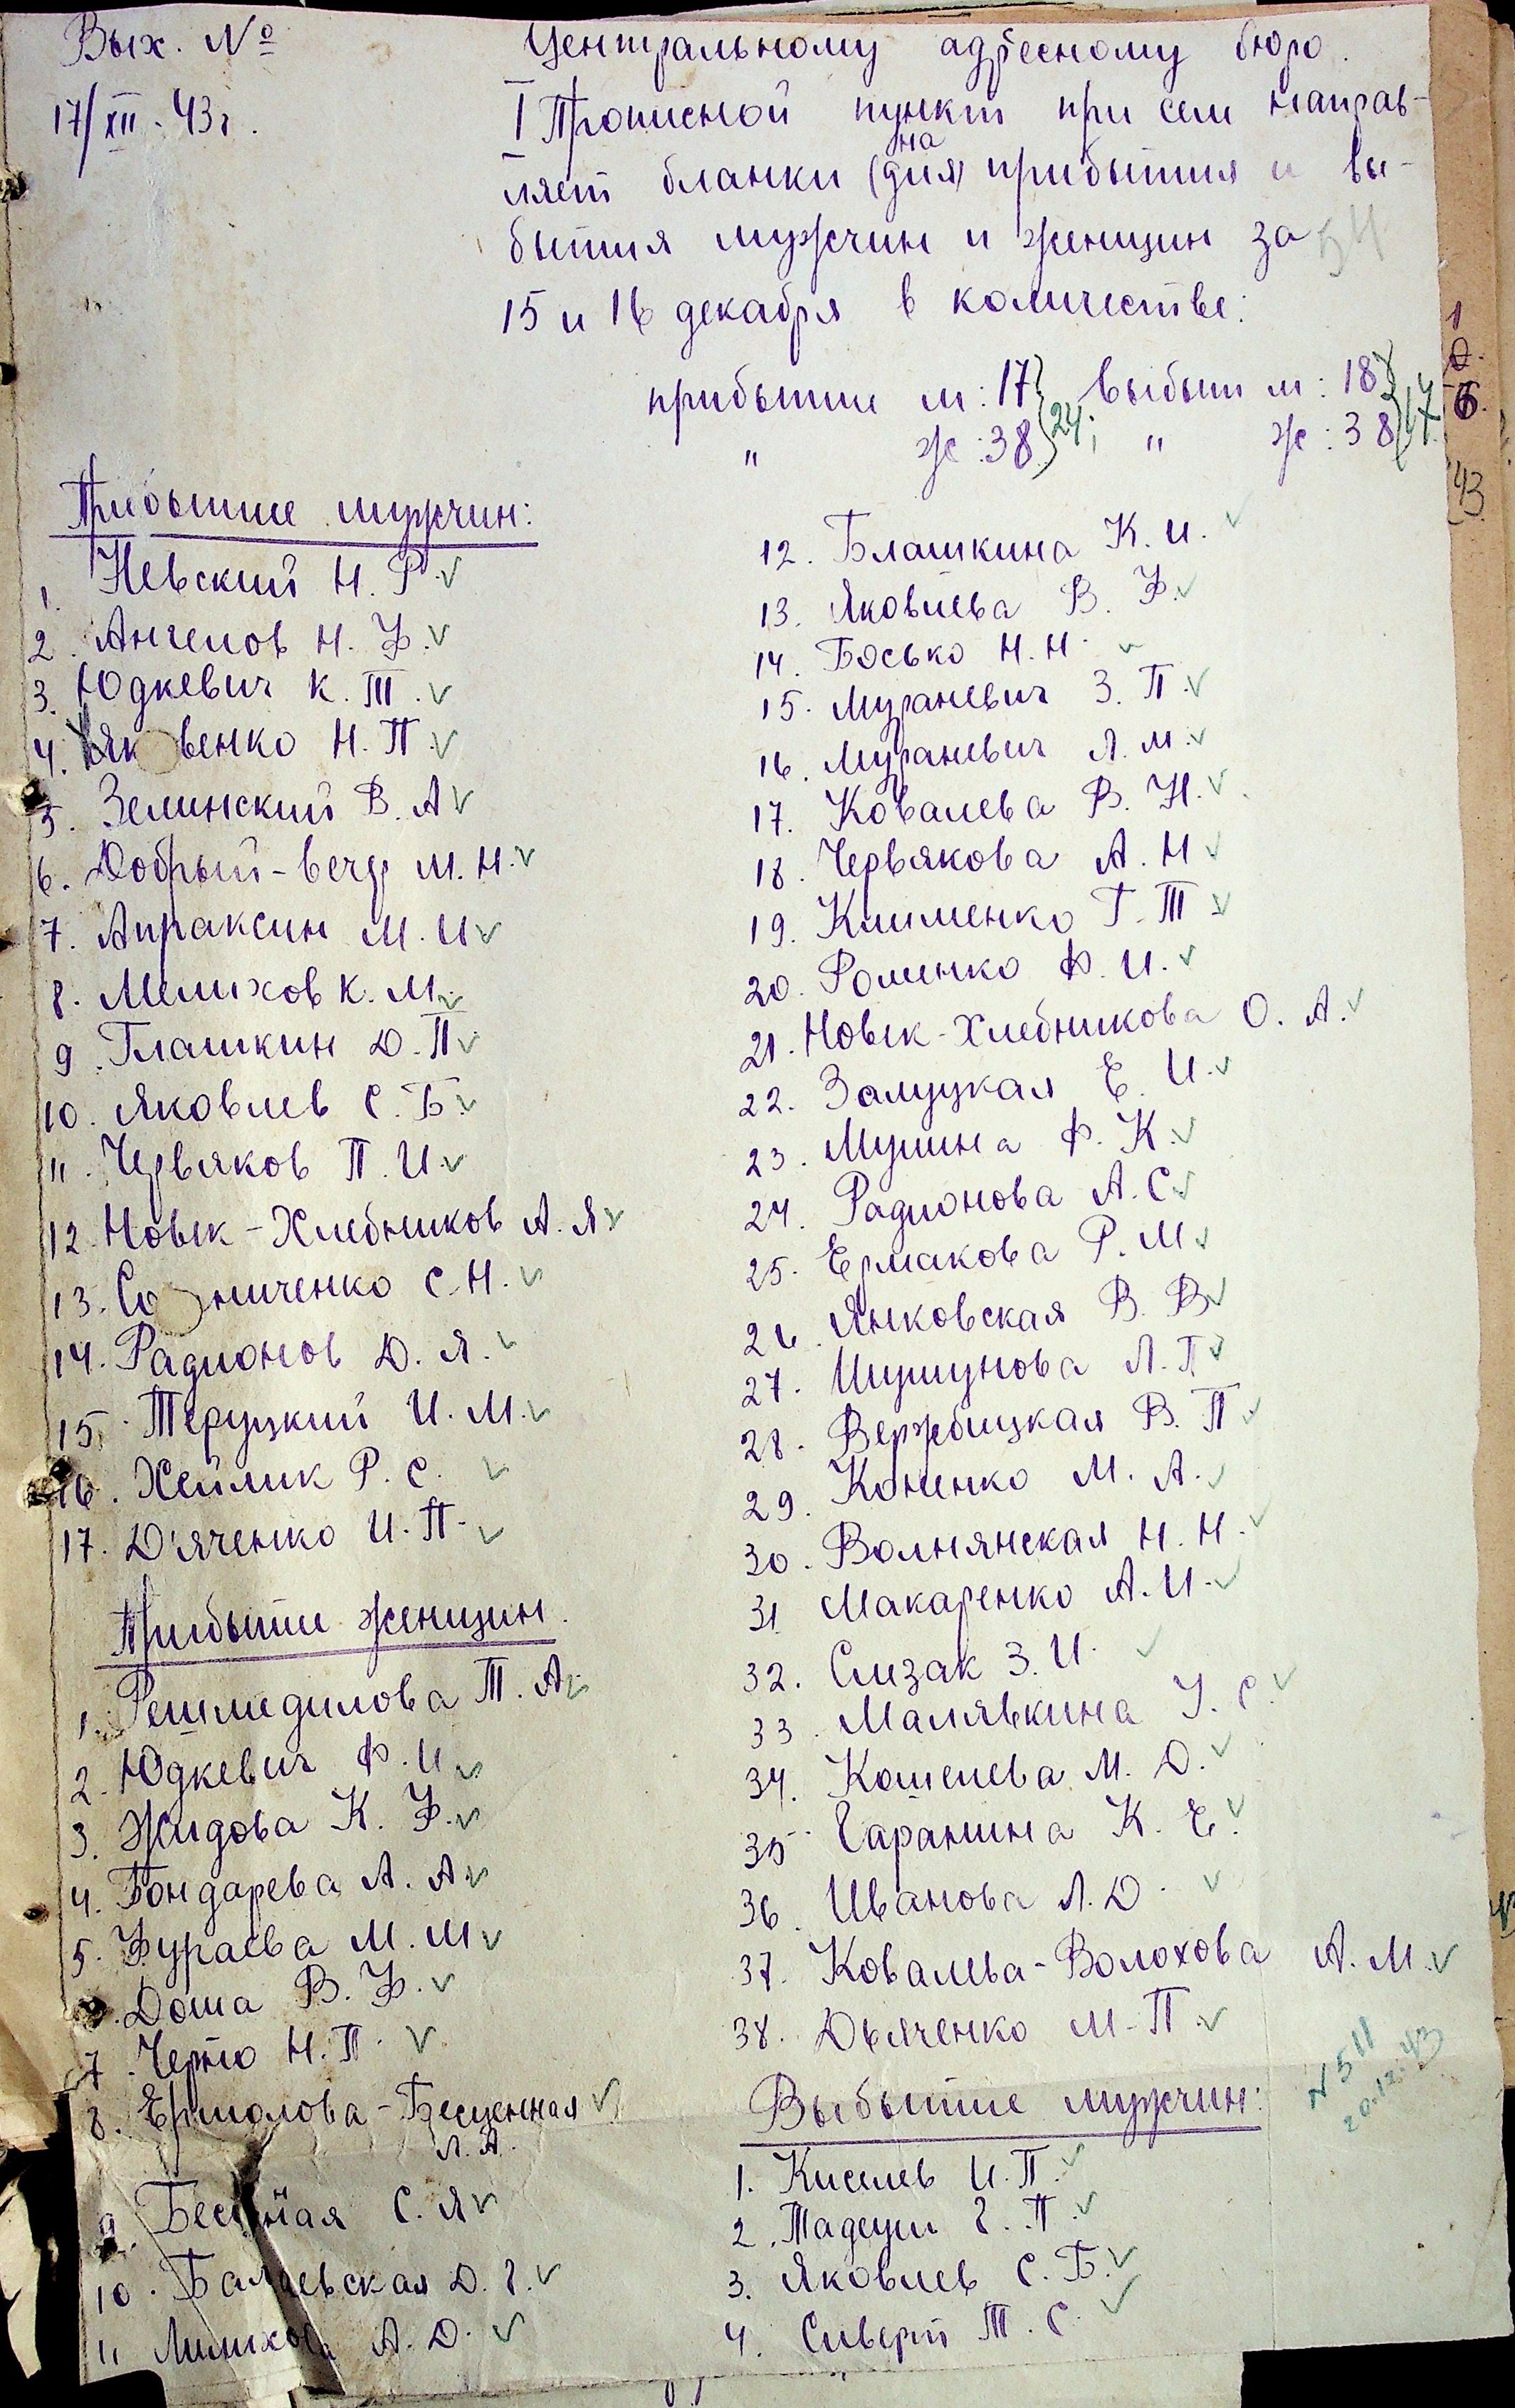 Вых. №
17/XII-43г.
Центральному адресному бюро.
I Прописной пункт при сем направ-
ляет бланки (для) на прибытия и вы-
бытия мужчин и женщин за
15 и 16 декабря в количестве:
прибытие м: 17 выбыт м: 18
" ж: 38 24; " ж: 38
Прибытие мужчин:
1. Невский Н. Р.
2. Ангелов Н. Ф.
3. Юдкевич К. Т.
4. Яковенко Н. П.
5. Зелинский В. А
6. Добрый-вечер М. Н.
7. Апраксин М. И
8. Мелихов К. М.
9. Глашкин Д. П.
10. Яковлев С. Б.
11. Червяков П. И.
12. Новек-Хлебников А. Я
13. Со ниченко С. Н.
14. Радионов Д. Я.
15. Теруцкий И. М.
16. Хейлик Р. С.
17. Д'яченко И. П.
Прибытие женщин.
1. Т. А.
2. Юдкевич Ф. И.
3. Жидова К. Ф.
4. Бондарева А. А
5. Фураева М. М
Доша В. Ф.
7. Н. П.
8. Ермолова-Бесценная
Л. А.
9. Бес ная С. Я
10. Ба евская Д. Г.
11 А. Д.
12. Блашкина К. И.
13. Яковлева В. Ф.
14. Босько Н. Н.
15. Мураневич З. П.
16. Мураневич Л. М.
17. Ковалева В. Н.
18. Червякова А. Н
19. Клименко Г. Т
20. Роменко Ф. И.
21. Новек-Хлебникова О. А.
22. Залуцкая Е. И.
23. Мушина Ф. К.
24. Радионова А. С
25. Ермакова Р. М.
26. Янковская В. В
27. Шушунова Л. П
28. Вержбицкая В. П
29. Коненко М. А.
30. Волнянская Н. Н.
31 Макаренко А. И.
32. Слизак З. И.
33. Малявкина У. С.
34. Кошелева М. Д.
35 Гаранина К. Е.
36. Иванова Л. Д.
37. Ковалева-Волохова А. М.
38. Дьяченко М. П.
Выбытие мужчин:
1. Киселев И. П.
2. Тадеуш Г. П.
3. Яковлев С. Б.
4. Сиверт Т. С.
N 511
20.12.43